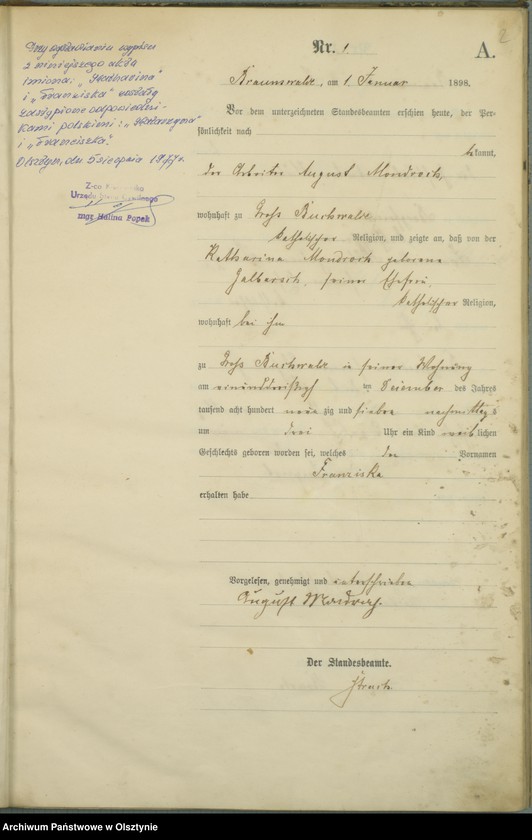 2
Nr. 1
A.
Przy wystawianiu wypisu
z niniejszego aktu
imiona: "Katharina"
i "Franziska" należy
zastąpić odpowiedni-
kami polskimi: "Katarzyna"
i "Franciszka".
Olsztyn, dnia 5 sierpnia 1977 r.
Z-ca Kierownika
Urzędu Stanu Cywilnego
mgr Halina Popek
Braunswalde, am 1. Januar 1898.
Vor dem unterzeichneten Standesbeamten erschien heute, der Per-
sönlichkeit nach
bekannt,
der Arbeiter August Mondroch,
wohnhaft zu Groß Buchwalde
katholischer Religion, und zeigte an, daß von der
Katharina Mondroch geborene
seiner Ehefrau,
katholischer Religion,
wohnhaft bei ihm
zu Groß Buchwalde in seiner Wohnung
am einunddreißigst ten Dezember des Jahres
tausend acht hundert neun zig und sieben nachmittags
um drei Uhr ein Kind weiblichen
Geschlechts geboren worden sei, welches den Vornamen
Franziska
erhalten habe
Vorgelesen, genehmigt und unterschrieben
August
Der Standesbeamte.
Archiwum Państwowe w Olsztynie